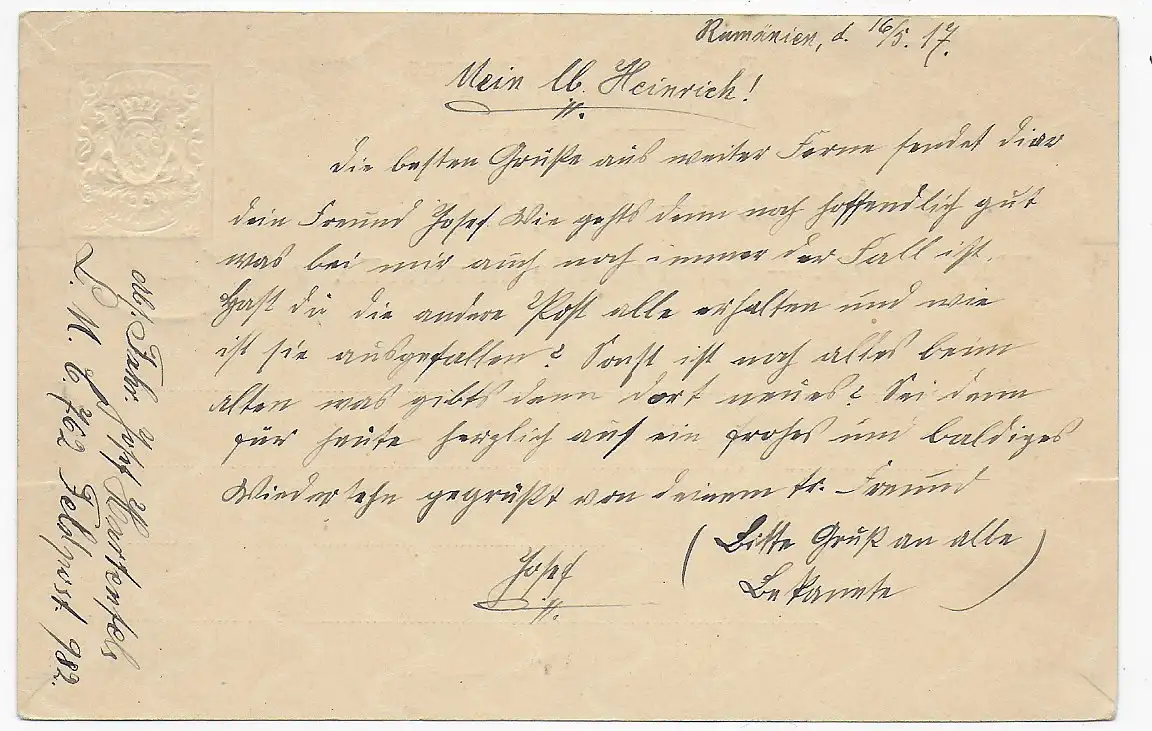 Rumänien, d. 16/5. 17.
Mein lb. Heinrich!
Die besten Grüße aus weiter Ferne sendet dier
dein Freund Josef. Wie gehts denn noch hoffendlich gut
was bei mir auch noch immer der Fall ist.
Hast du die andere Post alle erhalten und wie
ist sie ausgefallen? Sonst ist noch alles beim
alten was gibts denn dort neues? Sei denn
für heute herzlich auf ein frohes und baldiges
Wiedersehn gegrüßt von deinem tr. Freund
Josef
(Bitte Gruß an alle
Bekannte)
Abs. Fahr. Josef Hartenfels
L. M. C. 762 Feldpost 982.